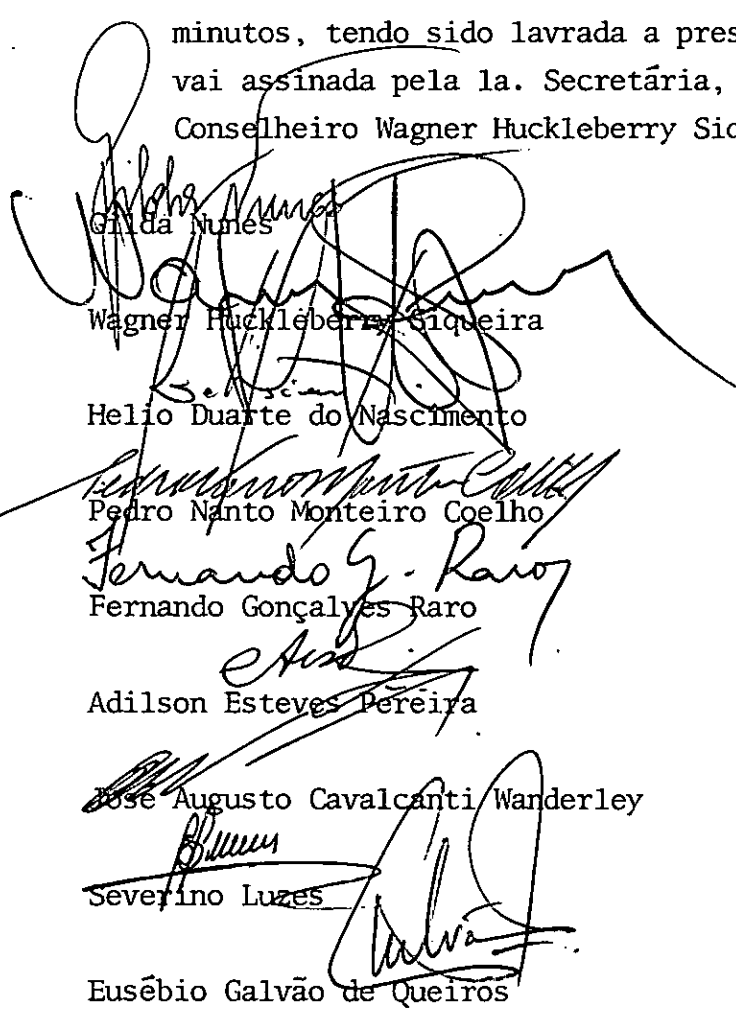 minutos, tendo sido lavrada a pres
vai assinada pela 1a. Secretária,
Conselheiro Wagner Huckleberry Siq
Gilda Nunes
Gilda Nunes
Wagner Huckleberry Siqueira
Helio Duarte do Nascimento
Pedro Nanto Monteiro Coelho
Fernando G. Raro
Fernando Gonçalves Raro
Adilson Esteves Pereira
José Augusto Cavalcanti Wanderley
Severino Luzes
Galvão
Eusébio Galvão de Queiros